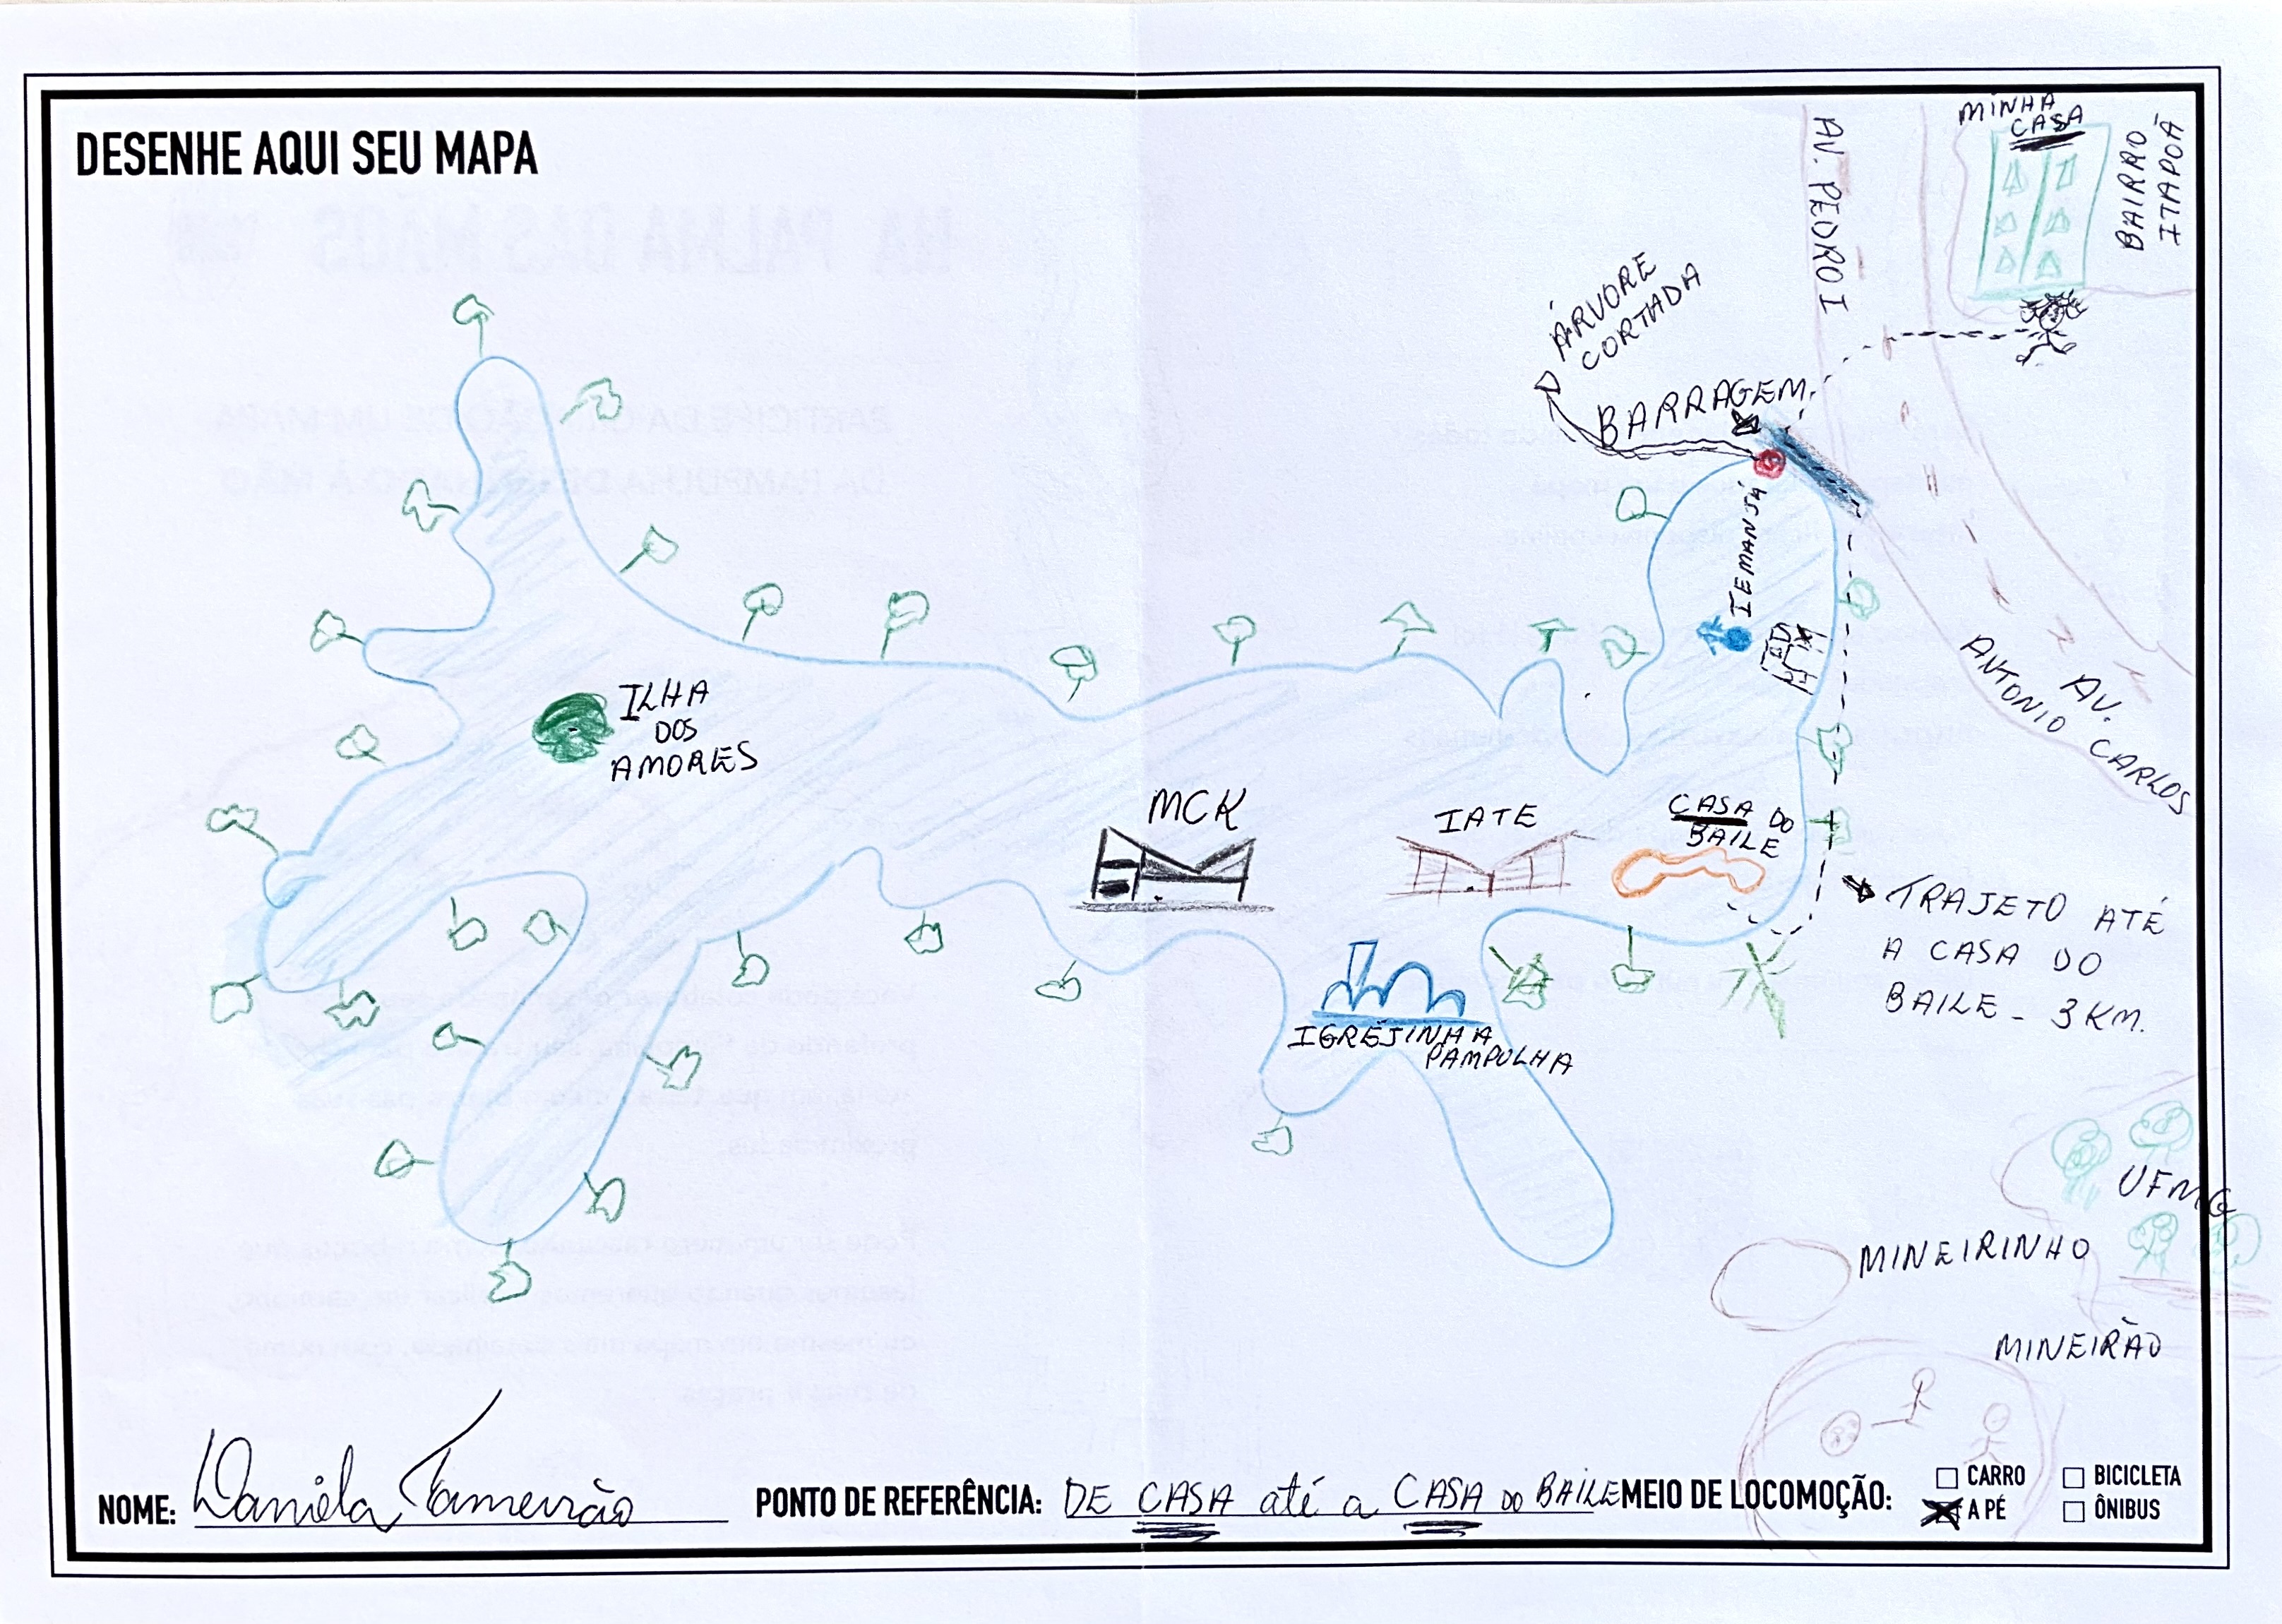 DESENHE AQUI SEU MAPA
MINHA
CASA
BAIRRO
ITAPOÁ
AV. PEDRO I
ÁRVORE
CORTADA
BARRAGEM
IEMANJÁ
AV.
ANTONIO CARLOS
ILHA
DOS
AMORES
MCK
IATE
CASA DO
BAILE
TRAJETO ATÉ
A CASA DO
BAILE - 3 KM.
IGREJINHA
PAMPULHA
UFMG
MINEIRINHO
MINEIRÃO
NOME: Daniela Tameirão
PONTO DE REFERÊNCIA: DE CASA até a CASA DO BAILE
MEIO DE LOCOMOÇÃO:
CARRO
BICICLETA
A PÉ
ÔNIBUS